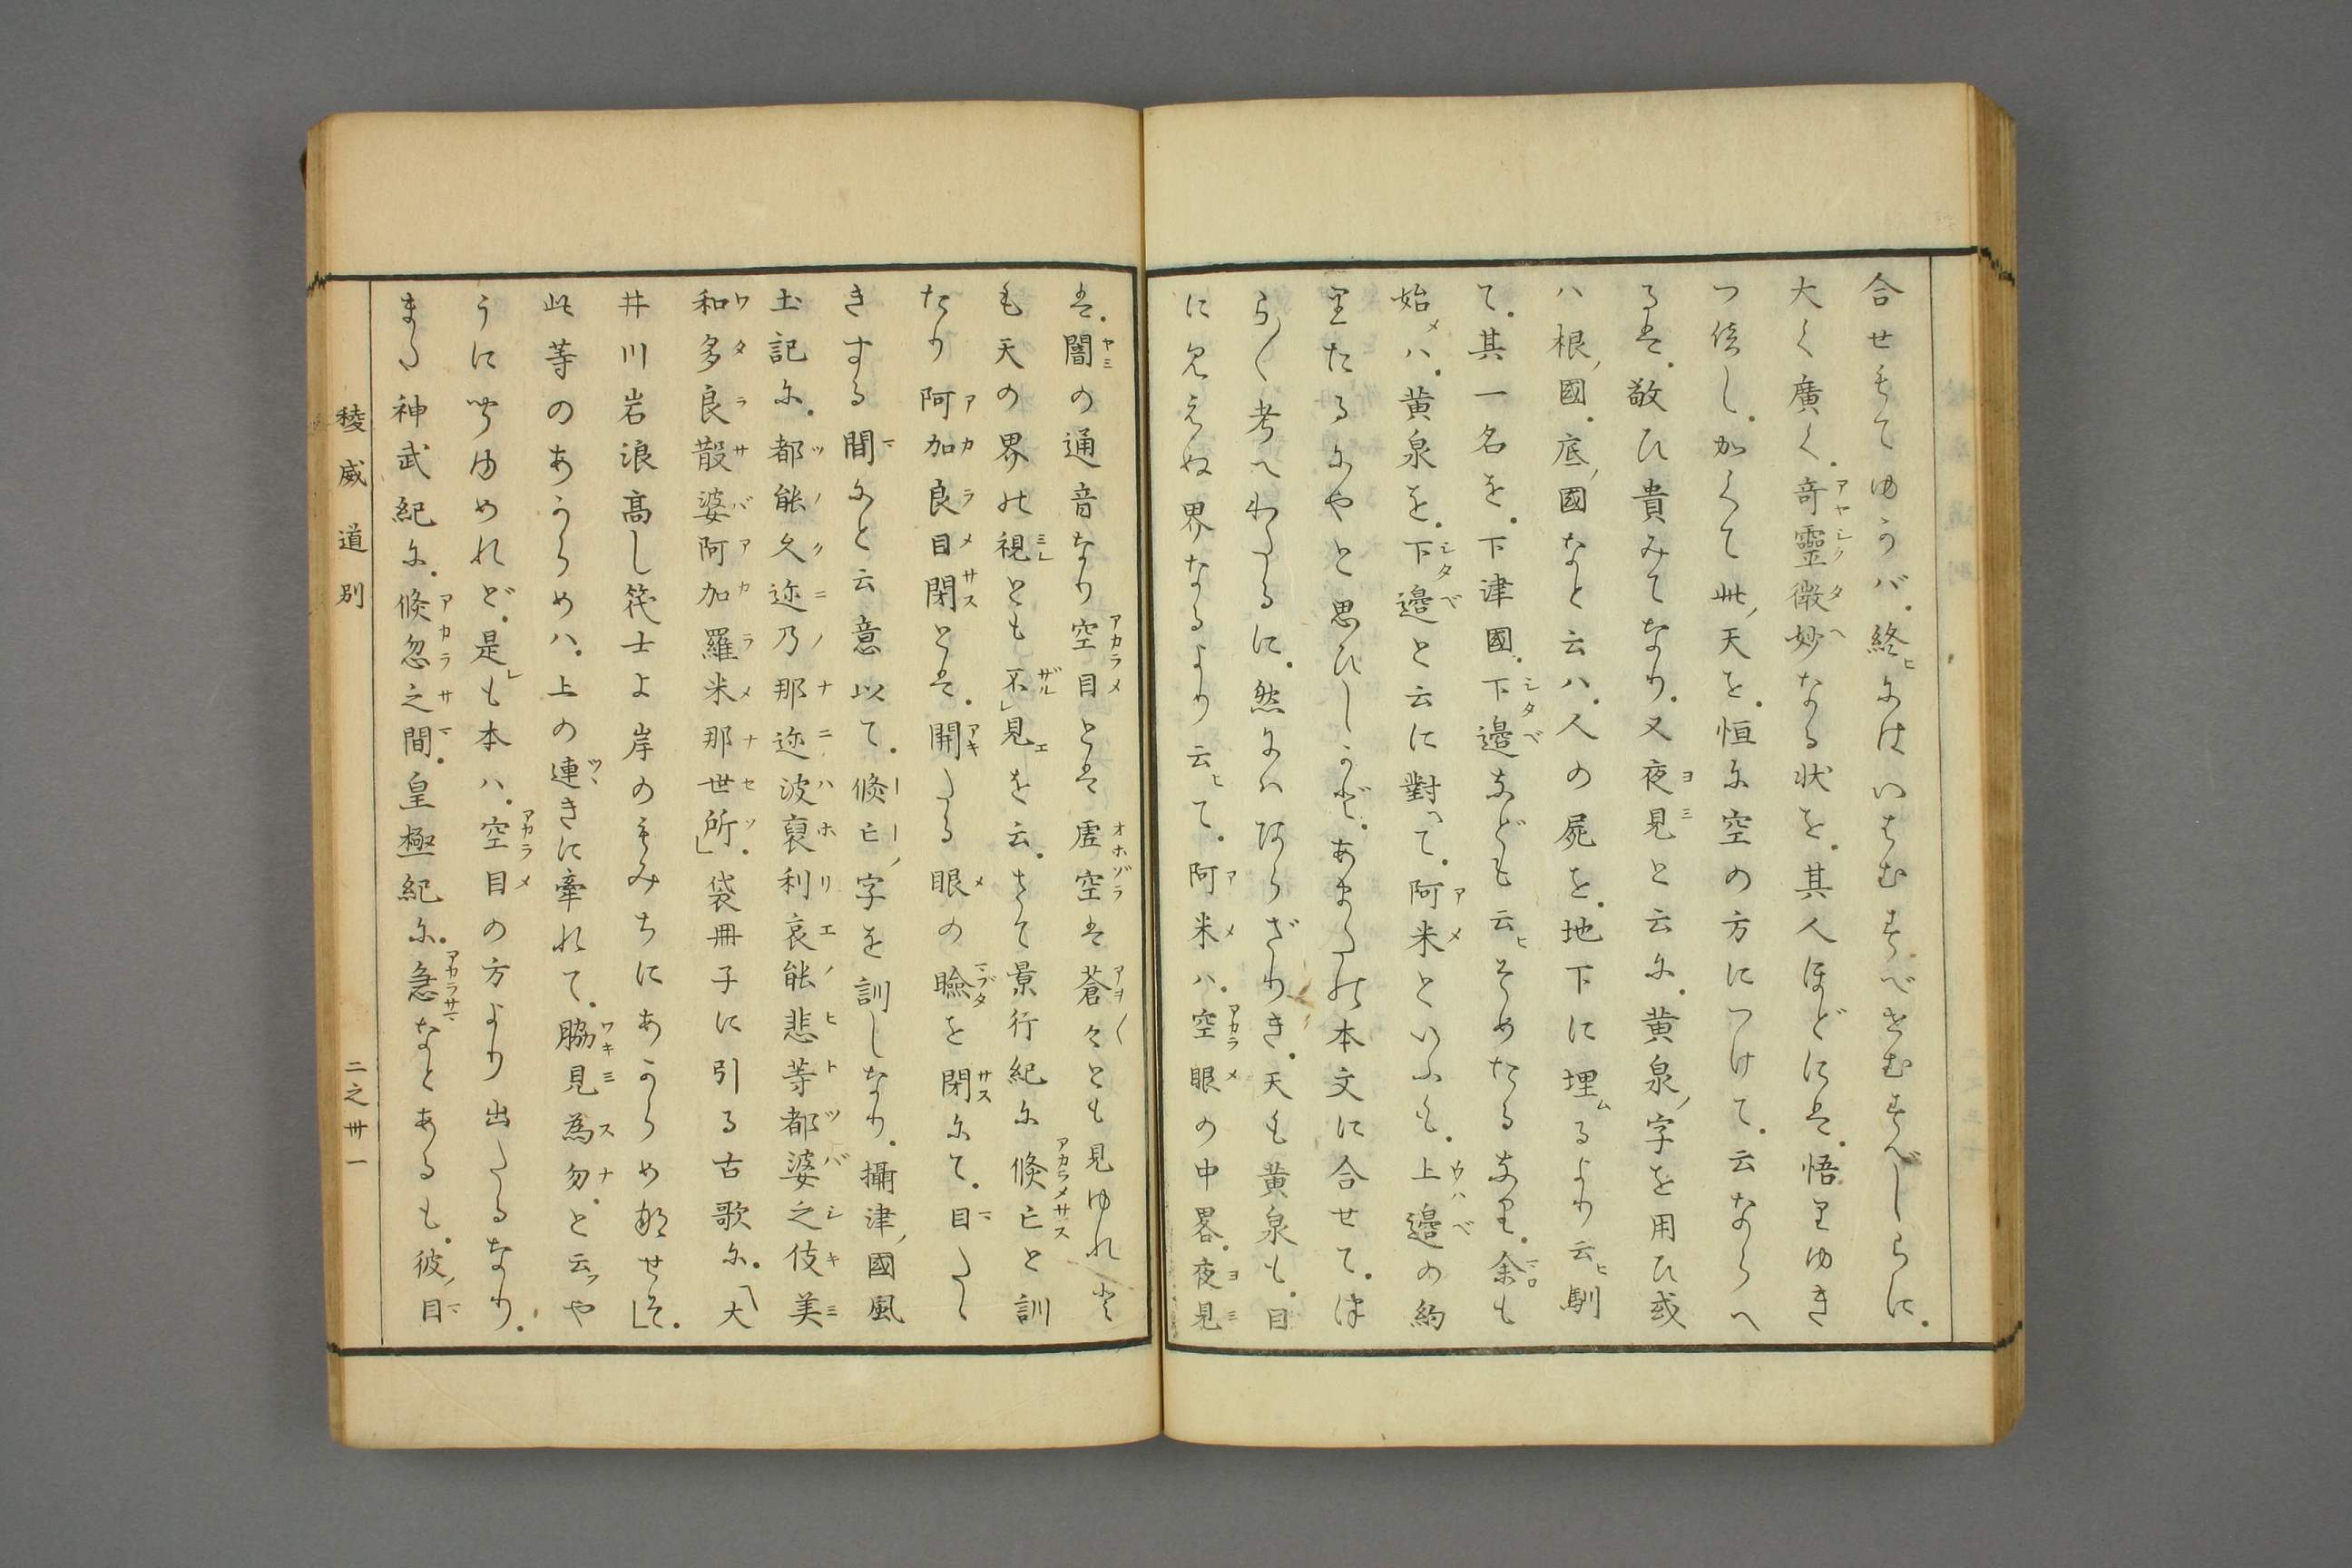 合せもてゆかバ。終にはいはむすべせむすべしらに。
大く廣く。奇靈微妙なる状を。其人ほどにハ。悟里ゆき
つ倍し。かくて此ノ天を。恒に空の方につけて。云ならへ
るハ。敬ひ貴みてなり。又夜見と云に。黄泉ノ字を用ひ或
ハ根ノ國。底ノ國なと云ハ。人の屍を。地下に埋るより云馴
て。其一名を。下津國。下邊なども云そめたるなり。余も
始メハ。黄泉を。下邊と云に對へて。阿米といふも。上邊の約
里たるにやと思ひしかど。あまたの本文に合せて。つ
ら〱考へわたるに。然にハあらざりき。天も黄泉も。目
に見えぬ界なるより云て。阿米ハ。空眼の中畧。夜見
ハ。闇の通音なり空目とハ虚空ハ蒼々とも見ゆれど
も天の界の視とも不見を云。さて景行紀に倏亡と訓
たり阿加良目閉とハ。開たる眼の瞼を閉にて。目たゝ
きする間にと云意以て。倏亡ノ字を訓しなり。攝津ノ國風
土記に。都能久迩乃那迩波裒利哀能悲等都婆之伎美
和多良散婆阿加羅米那世所」。袋冊子に引る古歌に。「大
井川岩浪高し筏士よ岸のもみちにあからめなせそ」。
此等のあからめハ。上の連きに牽れて。脇見為勿。と云や
うに聞ゆめれど。是も本ハ。空目の方より出たるなり。
また神武紀に。倏忽之間。皇極紀に。急なとあるも。彼ノ目
稜威道別
二之卅一